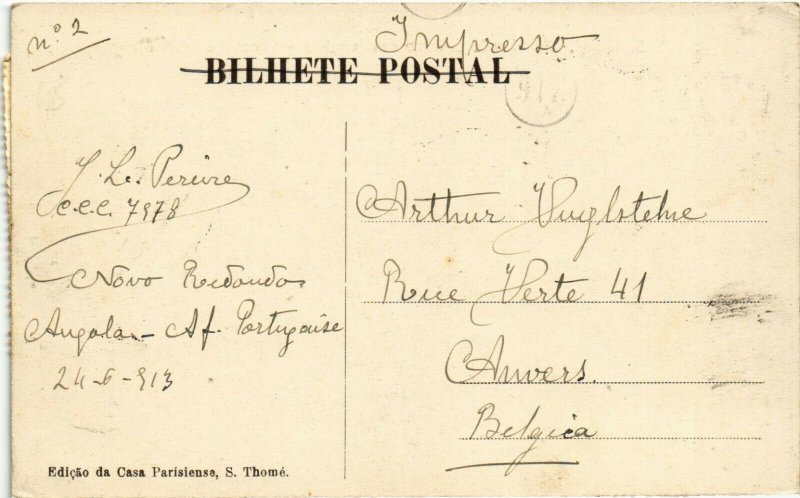 nº 2
Impresso
BILHETE POSTAL
J. Le. Pereire
C.C.C. 7978
Novo Redondo
Angola - Af. Portugaise
24-6-913
Arthur
Rue Verte 41
Anvers.
Belgica
Edição da Casa Parisiense, S. Thomé.